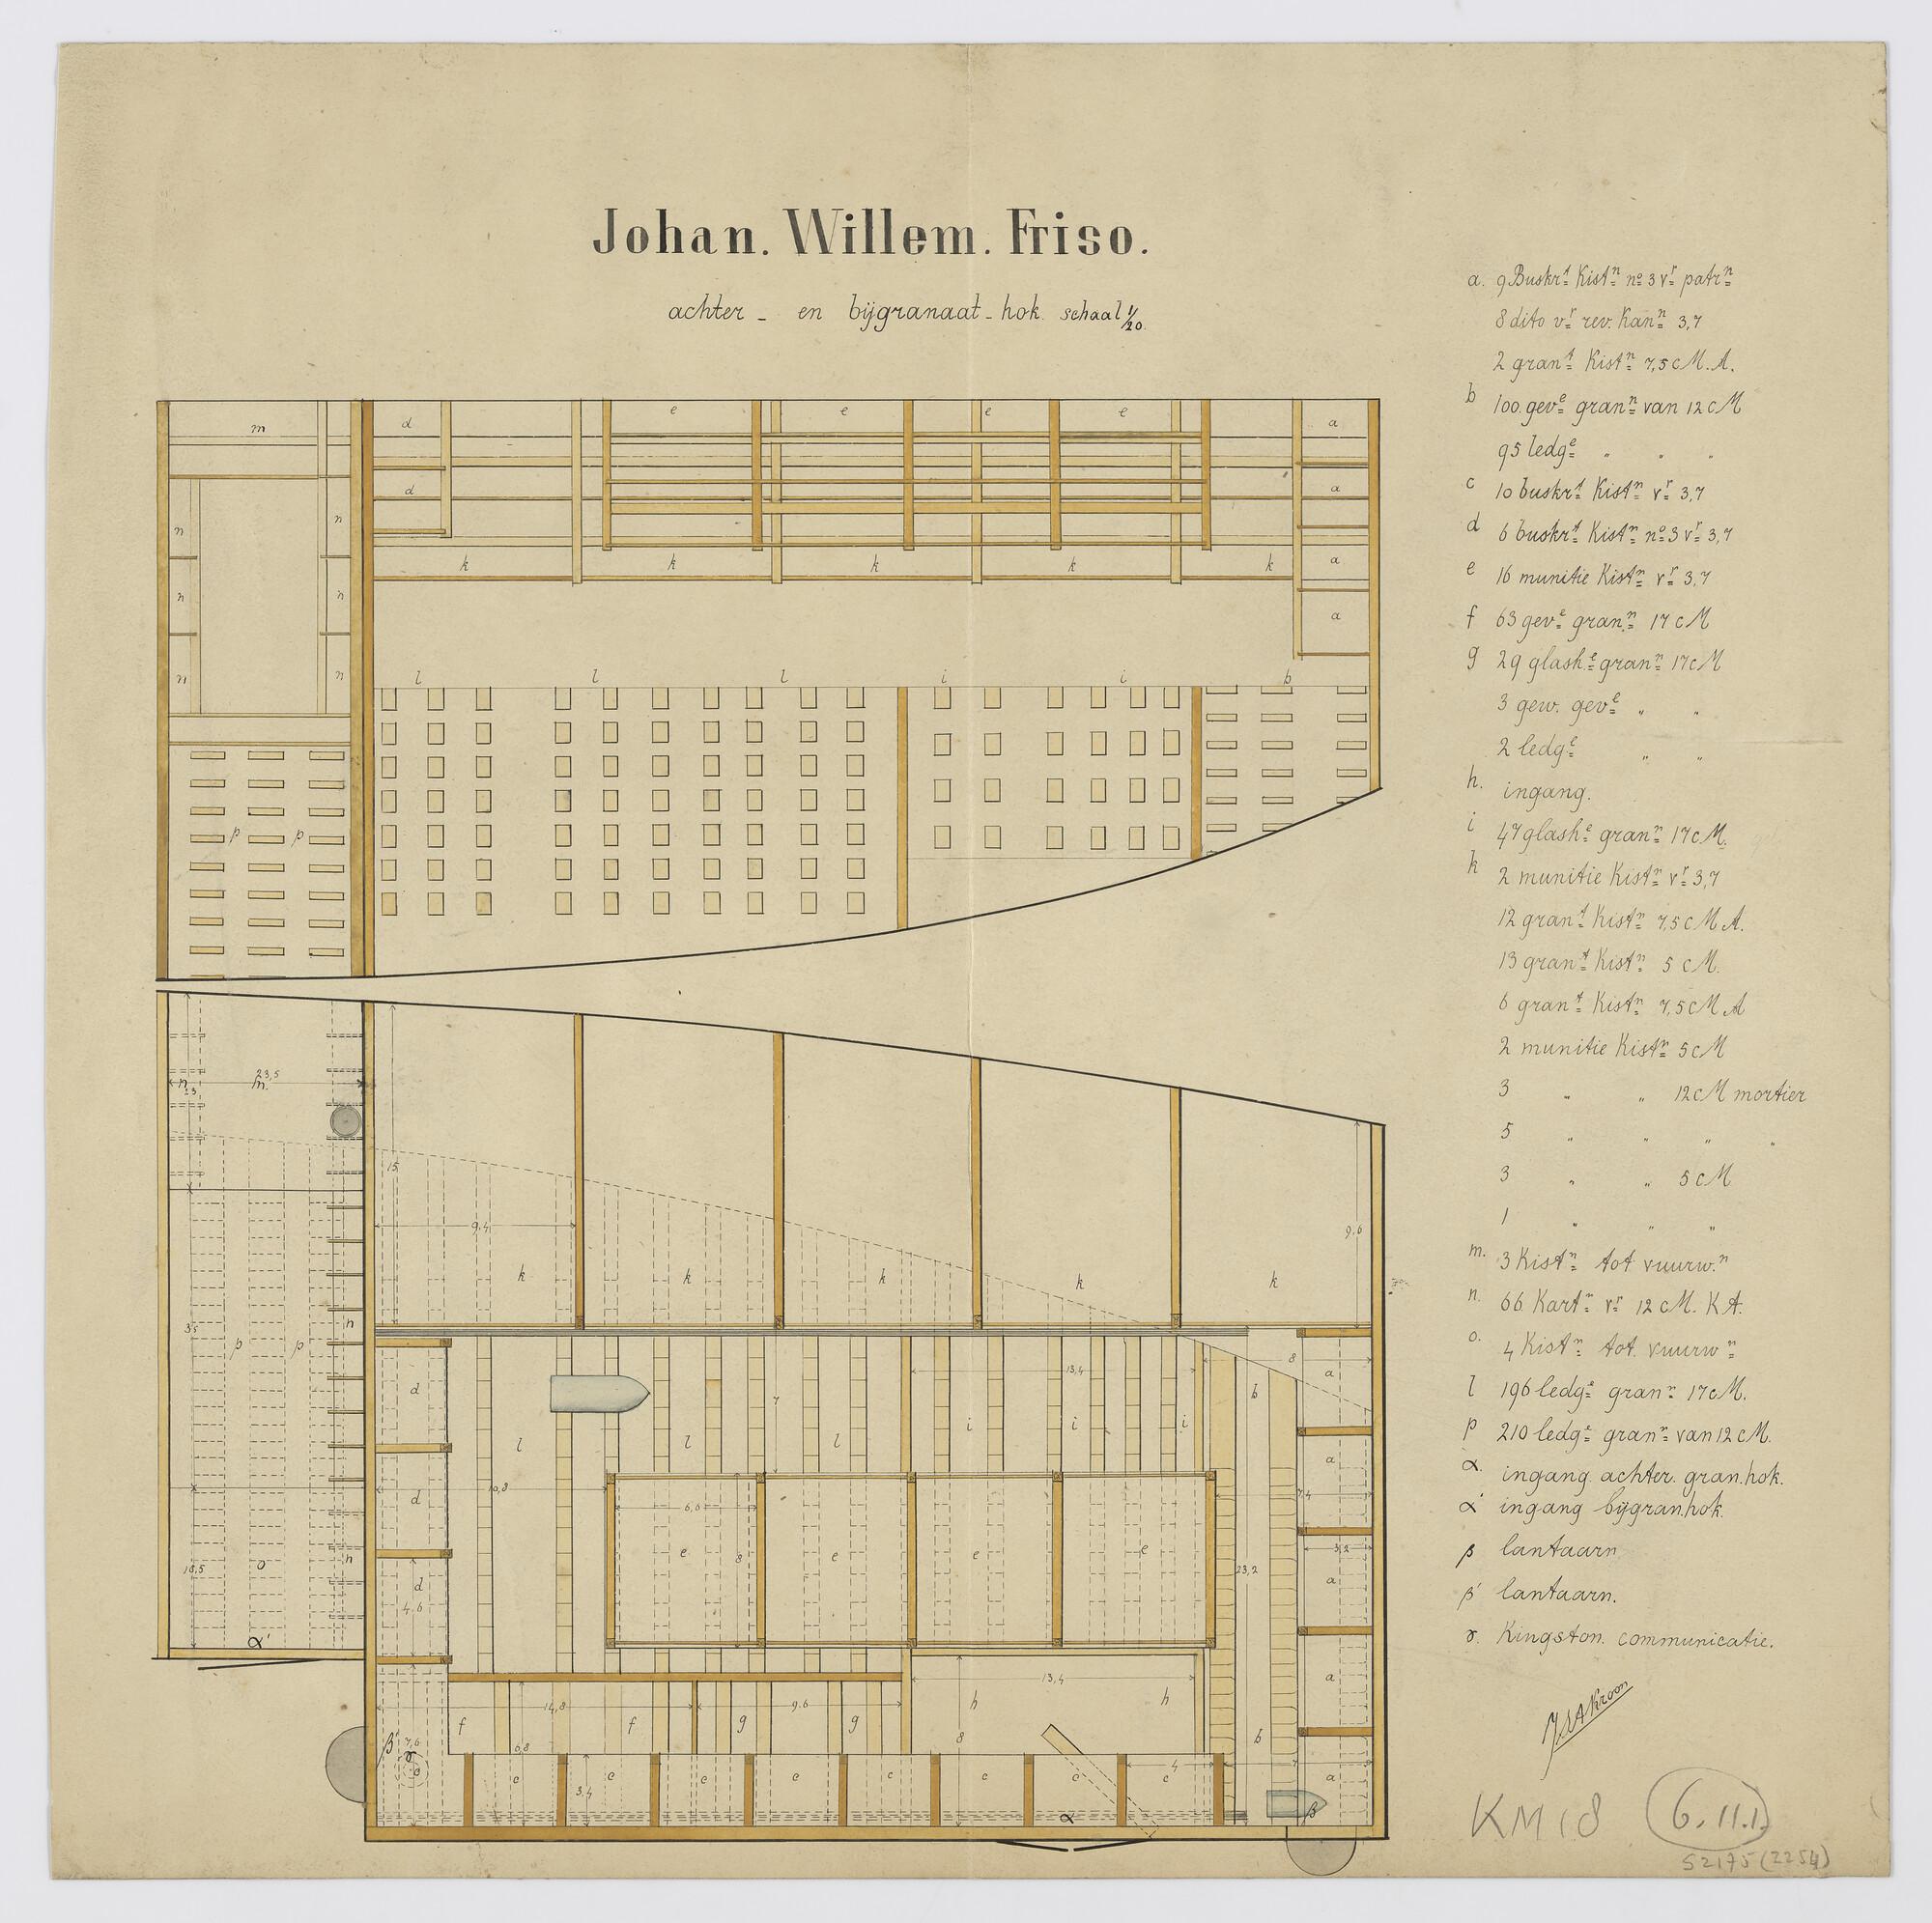 Johan. Willem. Friso.
achter - en bijgranaat - hok. schaal 1/20.
a. 9 Buskrt Kistn no 3 vr patrn
8 dito vr rev. Kann 3,7
2 grant Kistn 7,5 cM. A.
b 100. geve grann van 12 cM
95 ledge " " "
c 10 buskrt Kistn vr 3,7
d 6 buskrt Kistn no 3 vr 3,7
e 16 munitie Kistn vr 3,7
f 63 geve grann 17 cM
g 29 glash.e grann 17 cM
3 gew. geve " "
2 ledge " "
h. ingang.
i 47 glashe grann 17 cM.
k 2 munitie Kistn vr 3,7
12 grant Kistn 7,5 cM A.
13 grant Kistn 5 cM.
6 grant Kistn 7,5 cM A
2 munitie Kistn 5 cM
3 " " 12 cM mortier
5 " " " "
3 " " 5 cM
1 " " "
m. 3 Kistn tot vuurw.n
n. 66 Kartn vr 12 cM. K A.
o. 4 Kistn tot vuurwn
l 196 ledge grann 17 cM.
p 210 ledge grann van 12 cM.
α. ingang achter. gran. hok.
α' ingang bijgran. hok.
β lantaarn
β' lantaarn.
γ. Kingston. communicatie.
KM 18 6.11.1.
S2175 (2254)
m d e e e e a
n n d a
k k k k k a
n n a
n n l l l i i b
p p
23,5
n m.
23
15
9,4
9,6
k k k k k
35 p p n
d 13,4 8 a
b
l l l i i i
7
a
d 10,8 6,6 7,4
e 8 e e e 3,2
23,2
10,5 o n d a
4,6
α'
14,8 9.6 13,4 a
f f g g h h
β' 7,6 γ 6,8 8 b
c c c c c c c c c 4 7 a
3,4
α β